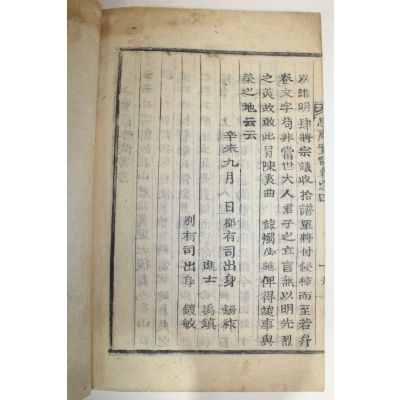 以譜明肆將宗議收拾譜單將付鋟梓而至若弁
卷文字苟非當世大人君子之立言無以明先烈
之美故敢此冒陳衷曲
諒燭
俾得竣事與
榮之地云云
辛未九月 日都有司出身 錫祚
進士 禹鎮
別有司出身 鍍敏